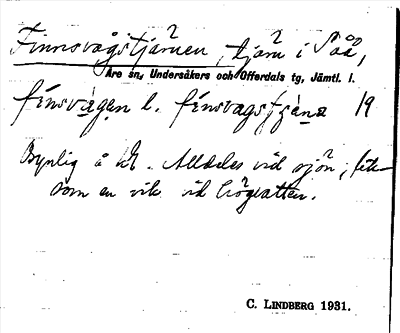 Finnsvågstjärnen, tjärn i Såå,
Åre sn, Undersåkers och Offerdals tg, Jämtl. l.
fínsvàgen l. fínsvagstjæ̀na 19
Synlig å kt. Alldeles vid sjön, lik-
som en vik vid högvatten.
C. LINDBERG 1931.